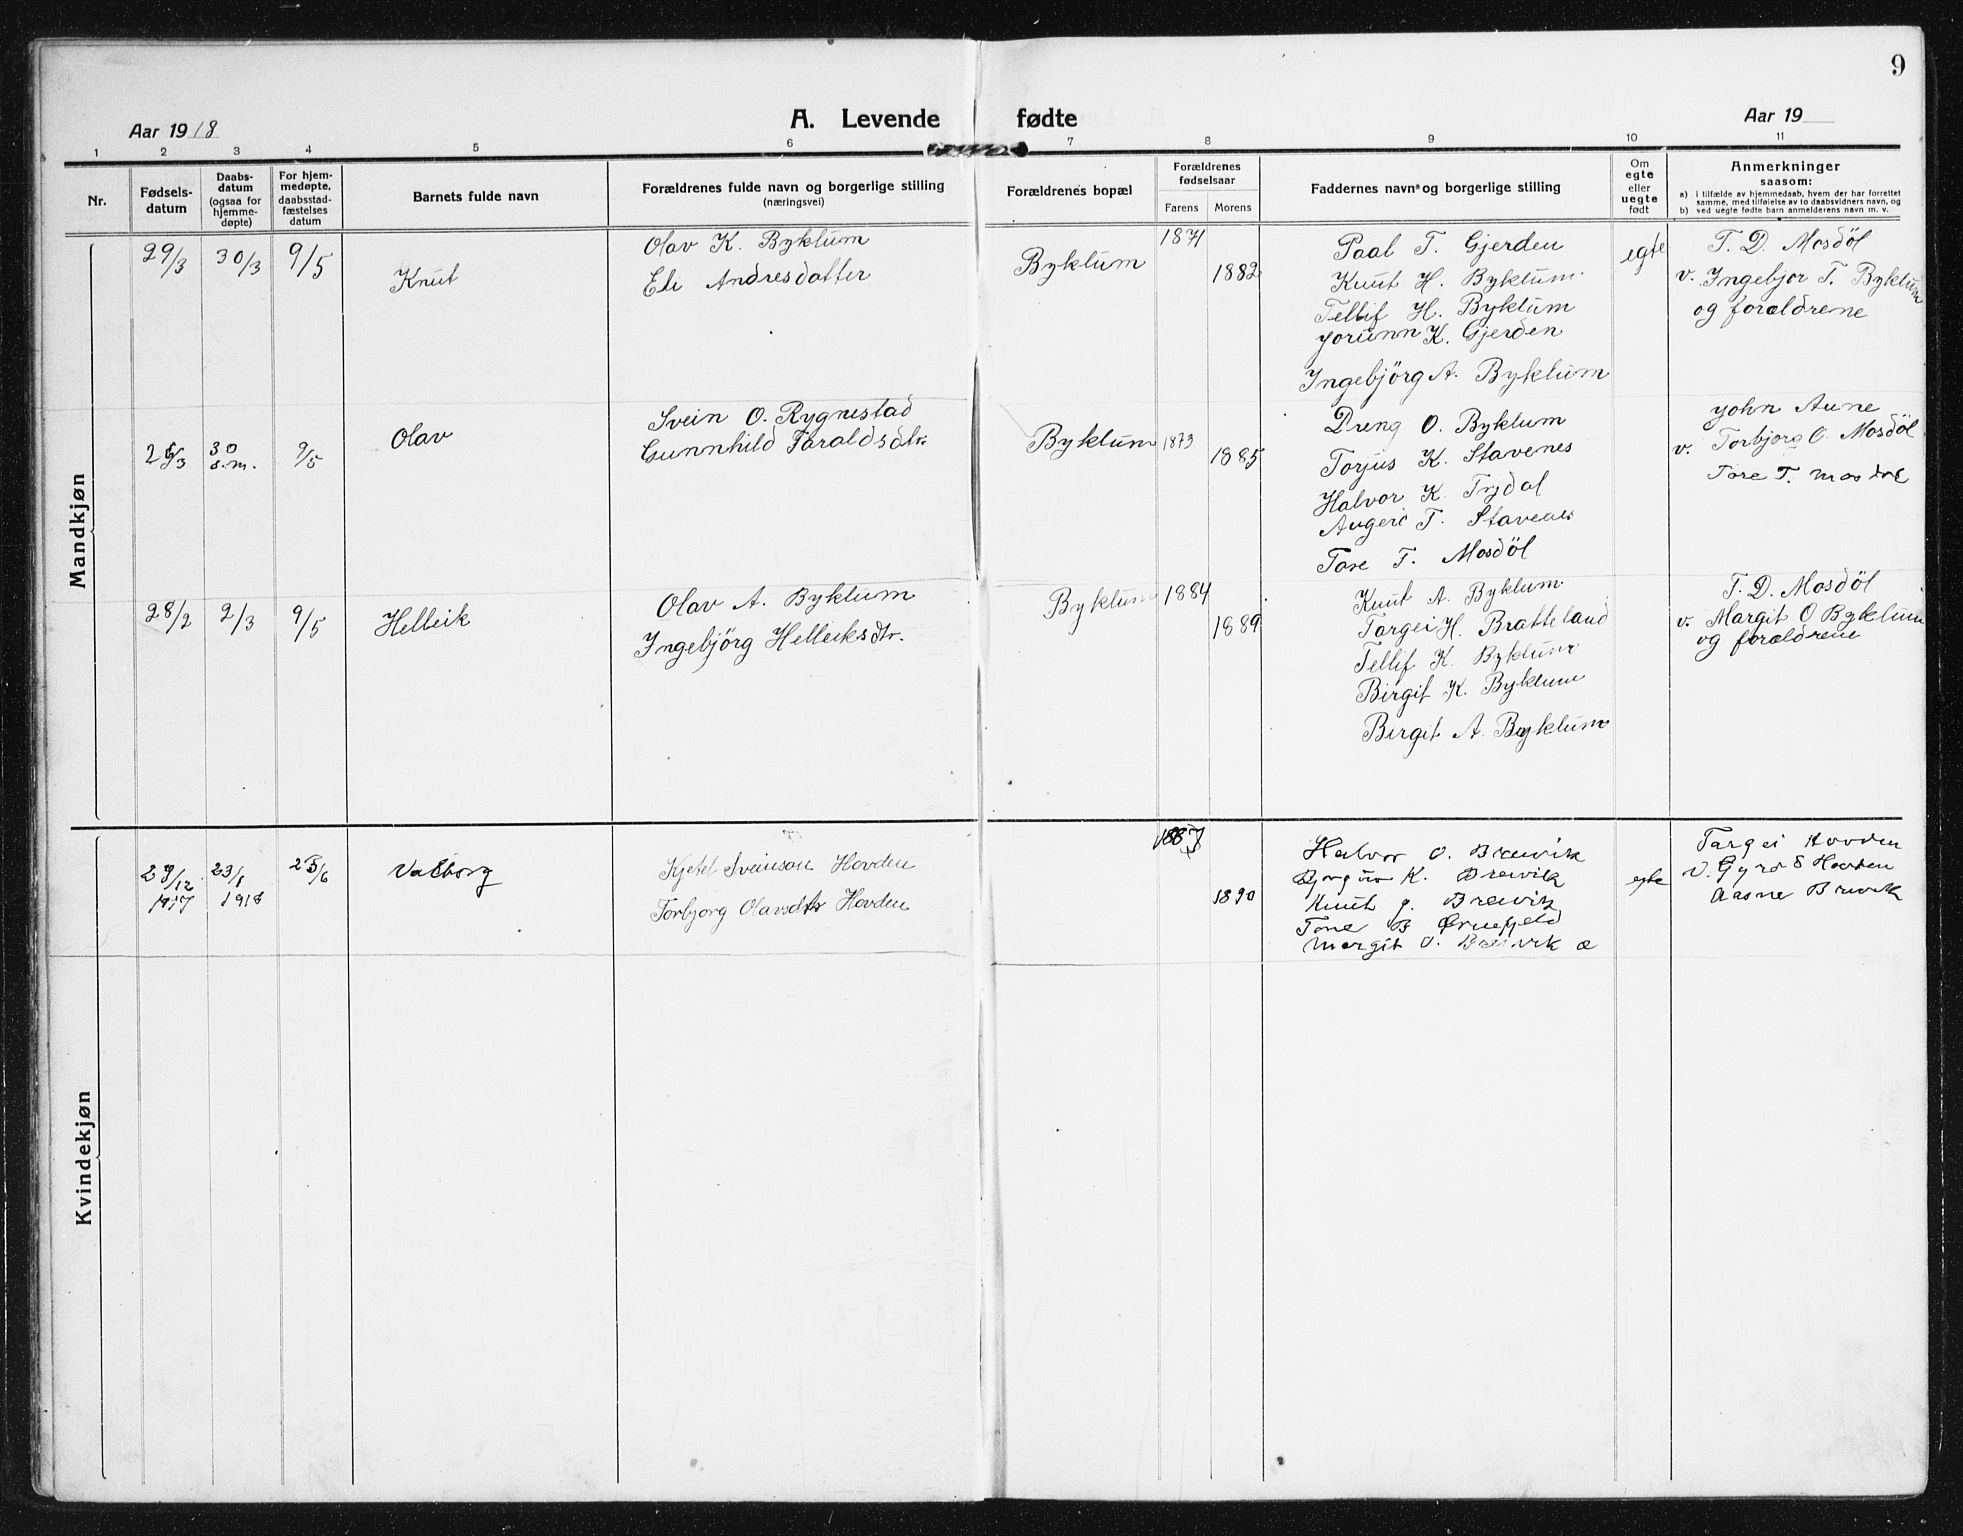 9
Aar 1918
A. Levende fødte
Aar 19
1 2 3 4 5 6 7 8 9 10 11
Nr.
Fødsels-
datum
Daabs-
datum
(ogsaa for
hjemme-
døpte)
For hjem-
medøpte,
daabsstad-
fæstelses
datum
Barnets fulde navn
Forældrenes fulde navn og borgerlige stilling
(næringsvei)
Forældrenes bopæl
Forældrenes
fødselsaar
Farens Morens
Faddernes navn og borgerlige stilling
Om
egte
eller
uegte
født
Anmerkninger
saasom:
a) i tilfælde av hjemmedaab, hvem der har forrettet
samme, med tilføielse av to daabsvidners navn, og
b) ved uegte fødte barn anmelderens navn m. v.
Mandkjøn
29/3 30/3 9/5
Knut
Olav K. Byklum
Eli Andresdatter
Byklum
1871
1882
Paal T. Gjerden
Knut H. Byklum
Tellif H. Byklum
Jorunn K. Gjerden
Ingebjörg A. Byklum
egte
T. D. Mosdöl
v. Ingebjor T. Byklum
og forældrene
26/3 30 s.m. 9/5
Olav
Svein O. Rygnestad
Gunnhild Taraldsdtr
Byklum
1873
1885
Dreng O. Byklum
Torjus K. Stavenes
Halvor K. Trydal
T. Stavenes
Tore T. Mosdöl
John Aune
v. Torbjorg O. Mosdöl
Tore T. Mosdöl
28/2 2/3 9/5
Helleik
Olav A. Byklum
Ingebjörg Helleiksdtr.
Byklum
1884
1889
Knut A. Byklum
Targei H. Bratteland
Tellif K. Byklum
Birgit K. Byklum
Birgit A. Byklum
T. D. Mosdöl
v. Margit O Byklum
og forældrene
Kvindekjøn
/12 1917
23/1 1918
/6
Valborg
Kjetel Sveinson Hovden
Torbjorg Olavsdtr Hovden
1887
1890
Halvor O. Breivik
K. Breivik
Knut J. Breivik
Tone B
Margit O. Breivik æ
egte
Targei Hovden
v. Gyro S Hovden
Aasne Breivik